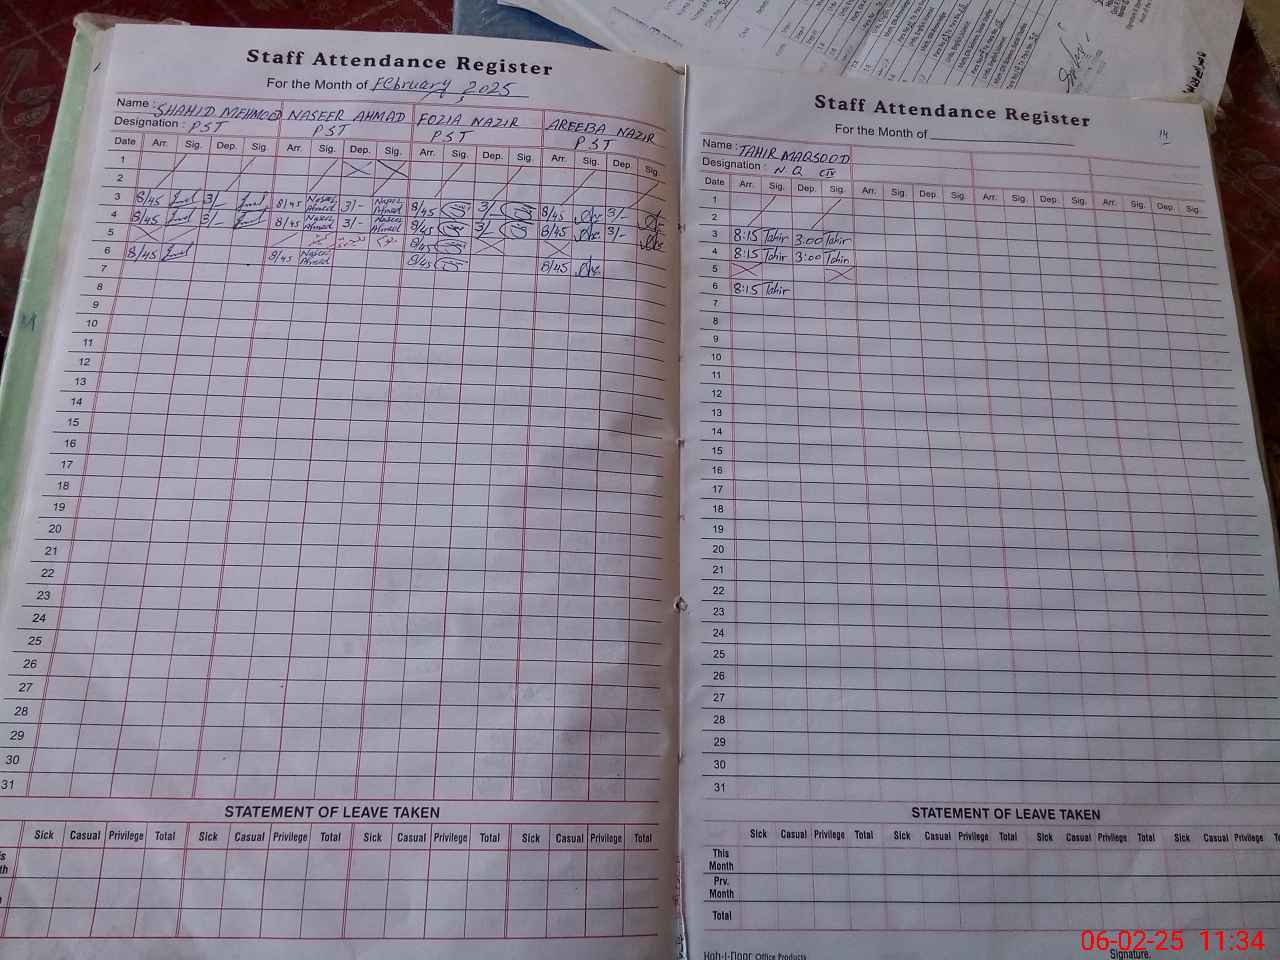 Staff Attendance Register
For the Month of February 2025
Name : SHAHID MEHMOOD NASEER AHMAD FOZIA NAZIR AREEBA NAZIR
Designation : PST PST PST PST
Date Arr. Sig. Dep. Sig. Arr. Sig. Dep. Sig. Arr. Sig. Dep. Sig. Arr. Sig. Dep. Sig.
1
2
3 8/45 3/- 8/45 Naseer Ahmed 3/- Naseer Ahmed 8/45 3/- 8/45 3/-
4 8/45 3/- 8/45 Naseer Ahmed 3/- Naseer Ahmed 8/45 3/- 8/45 3/-
5 8/45
6 8/45 8/45 Naseer Ahmed 8/45 8/45
7
8
9
10
11
12
13
14
15
16
17
18
19
20
21
22
23
24
25
26
27
28
29
30
31
STATEMENT OF LEAVE TAKEN
Sick Casual Privilege Total Sick Casual Privilege Total Sick Casual Privilege Total Sick Casual Privilege Total
Staff Attendance Register
14
For the Month of
Name : TAHIR MAQSOOD
Designation : N.Q CIV
Date Arr. Sig. Dep. Sig. Arr. Sig. Dep. Sig. Arr. Sig. Dep. Sig. Arr. Sig. Dep. Sig.
1
2
3 8:15 Tahir 3:00 Tahir
4 8:15 Tahir 3:00 Tahir
5
6 8:15 Tahir
7
8
9
10
11
12
13
14
15
16
17
18
19
20
21
22
23
24
25
26
27
28
29
30
31
STATEMENT OF LEAVE TAKEN
Sick Casual Privilege Total Sick Casual Privilege Total Sick Casual Privilege Total Sick Casual Privilege
This Month
Prv. Month
Total
Koh-i-Noor Office Products
Signature.
06-02-25 11:34